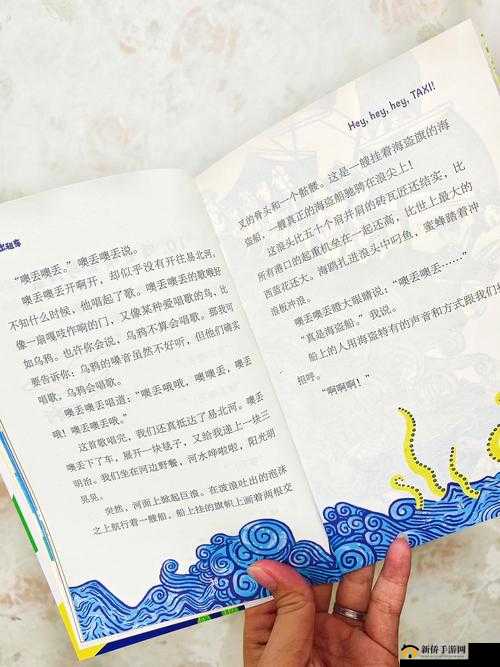 出租车
“噢丢噢丢。”噢丢噢丢说。
噢丢噢丢开啊开，却似乎没有开往易北河。
不知什么时候，他唱起了歌。噢丢噢丢的歌喉好
像一扇嘎吱作响的门，又像某种爱唱歌的鸟，比
如乌鸦。也许你会说，乌鸦不算会唱歌。那我可
要告诉你：乌鸦的嗓音虽然不好听，但他们确实
唱歌，乌鸦会唱歌。
噢丢噢丢唱道：“噢丢哦哦，噢噢丢，噢丢
哦！噢丢噢丢哦。”
这首歌唱完，我们还真抵达了易北河。噢丢
噢丢下了车，展开一块毯子，又给我递上一块三
明治。我们坐在河边野餐，河水哗啦啦，阳光明
晃晃。
突然，河面上掀起巨浪。在波浪吐出的泡沫
之上航行着一艘船。船上挂的旗帜上画着两根交
Hey, hey, hey, TAXI!
叉的骨头和一个骷髅。这是一艘挂着海盗旗的海
盗船，一艘真正的海盗船驰骋在浪尖上！
这浪头比五十个肩并肩的砖瓦匠还结实，比
所有港口的起重机垒在一起还高，比世上最大的
西蓝花还大。海鸥扎进浪头中叼鱼，蜜蜂踏着冲
浪板冲浪。
噢丢噢丢瞪大眼睛说：“噢丢噢丢……”
“真是海盗船。”我说。
船上的人用海盗特有的声音和方式跟我们
相呼。
“啊啊啊！”
新侨手游网